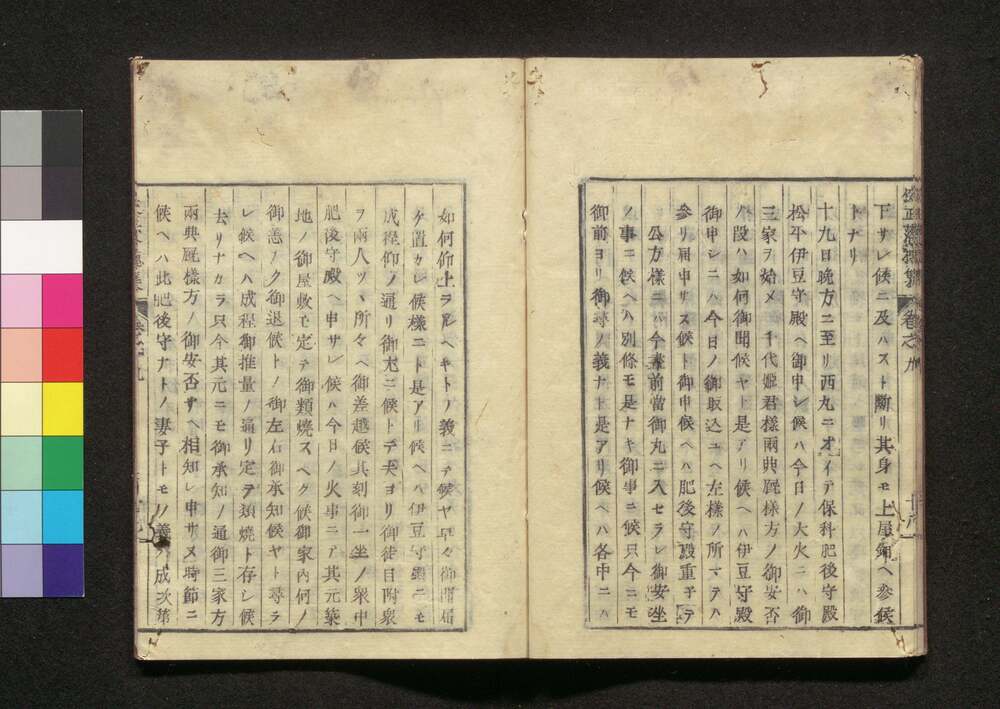 下サレ候ニ及ハスト斷リ其身モ上屋鋪ヘ參候
トナリ
十九日晩方ニ至リ西丸ニオイテ保科肥後守殿
松平伊豆守殿ヘ御申シ候ハ今日ノ大火ニハ御
三家ヲ始メ千代姬君樣兩典厩樣方ノ御安否
ノ段ハ如何御聞候ヤト是アリ候ヘハ伊豆守殿
御申シニハ今日ノ御取込ユヘ左樣ノ所マテハ
參リ屆申サス候ト御申候ヘハ肥後守殿重子テ
公方樣ニハ今朝當御丸ニ入セラレ御安坐
ノ事ニ候ヘハ別條モ是ナキ御事ニ候只今ニモ
御前ヨリ御尋ノ義ナト是アリ候ヘハ各中ニハ
卷之九
如何仰上ラルヘキトノ義ニテ候ヤ早々御聞屆
ケ置カレ候樣ニト是アリ候ヘハ伊豆守ニモ
成程仰ノ通リ御尤ニ候トテ夫ヨリ御徒目附衆
ヲ兩人ツヽ所々ヘ御差越候其刻御一坐ノ衆中
肥後守殿ヘ申サレ候ハ今日ノ火事ニテ其元築
地ノ御屋敷モ定テ御類燒スヘク候御家內何ノ
御恙ナク御退候トノ御左右御承知候ヤト尋ラ
レ候ヘハ成程御推量ノ通リ定テ類燒ト存シ候
去リナカラ只今其元ニモ御承知ノ通御三家方
兩典厩樣方ノ御安否サヘ相知レ申サヌ時節ニ
候ヘハ此肥後守ナトノ妻子トモノ義ハ成次第